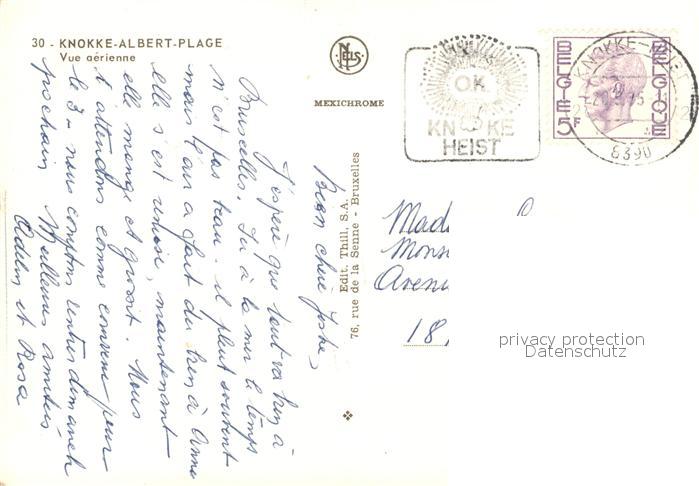 30 - KNOKKE-ALBERT-PLAGE
Vue aérienne
NELS
MEXICHROME
OK
KNOKKE
HEIST
BELGIE 5F BELGIQUE
KNOKKE-HEIST
8390
Edit. Thill, S.A.
76, rue de la Senne - Bruxelles
Bien chère
J'espère que tout va bien à
Bruxelles. Ici à la mer le temps
n'est pas beau. il pleut souvent
mais l'air a fait du bien à Anne
elle s'est remise, maintenant
elle mange et grossit. Nous
t attendons comme convenu pour
le 3 - nous comptons rentrer dimanche
prochain Meilleures amitiés
et Rosa
Mad
Mons
Avenu
18,
privacy protection
Datenschutz